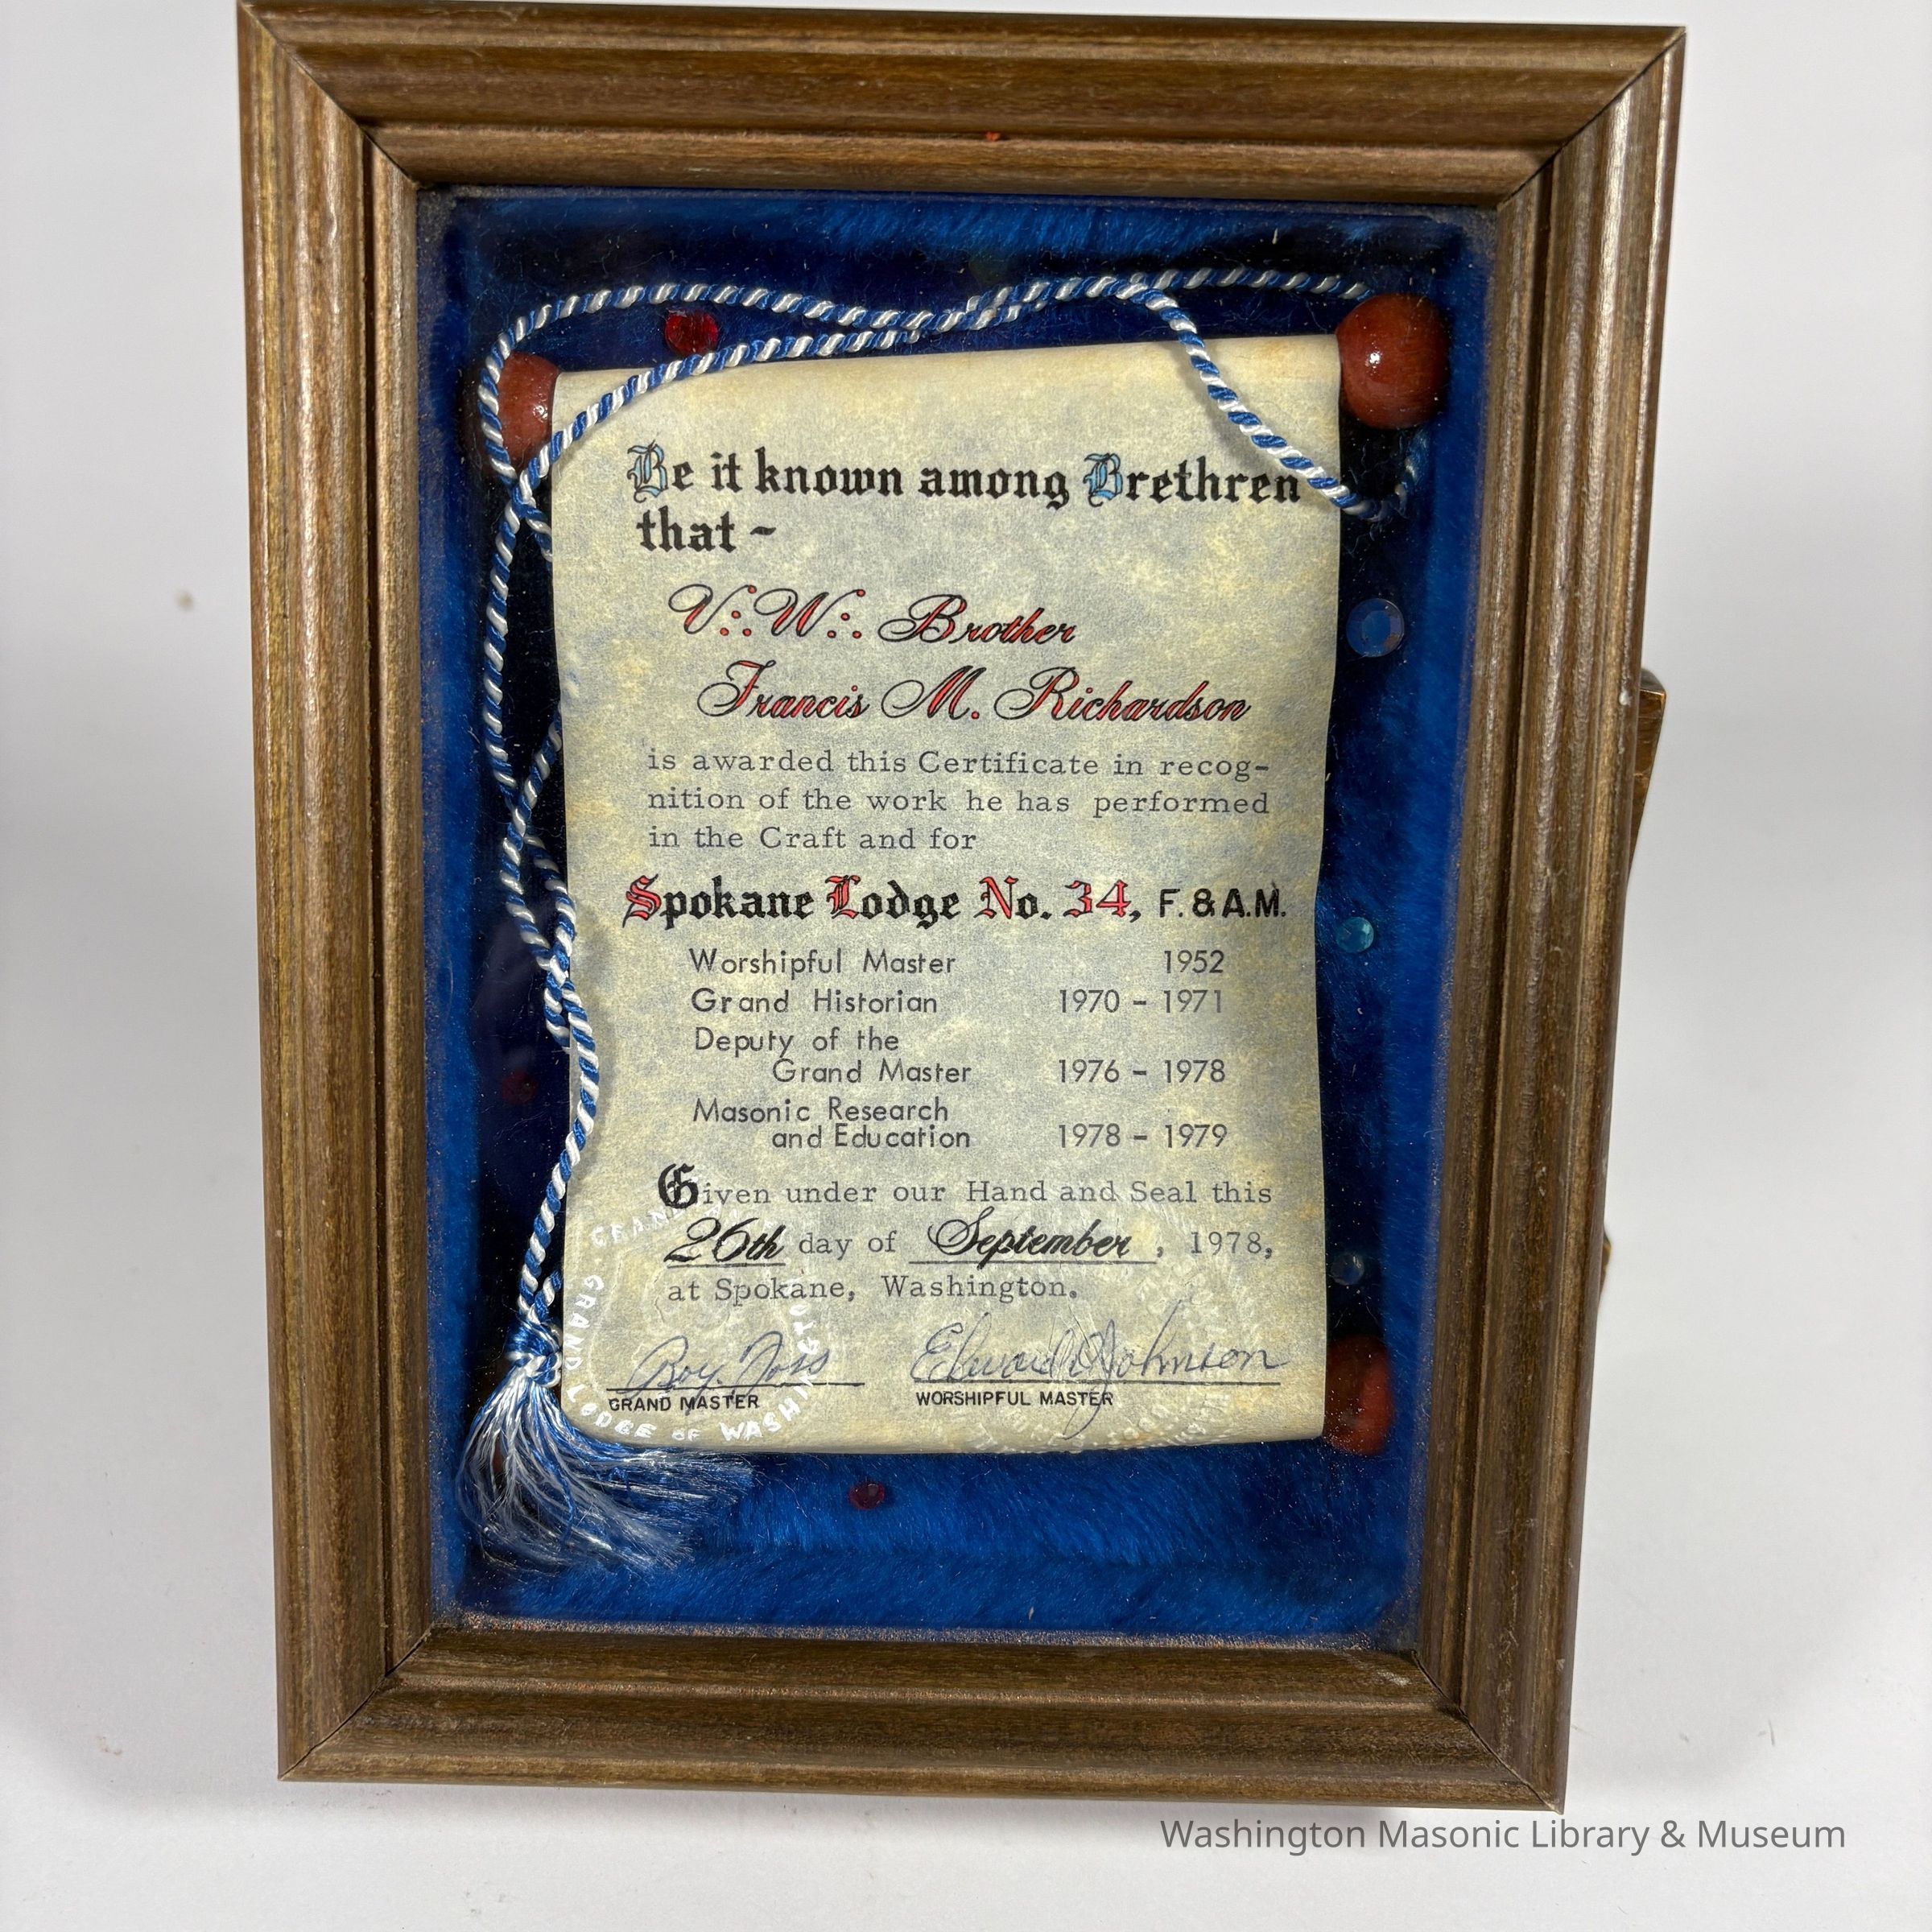 Be it known among Brethren
that ~
V∴W∴ Brother
Francis M. Richardson
is awarded this Certificate in recog-
nition of the work he has performed
in the Craft and for
Spokane Lodge No. 34, F. & A.M.
Worshipful Master 1952
Grand Historian 1970 - 1971
Deputy of the
Grand Master 1976 - 1978
Masonic Research
and Education 1978 - 1979
Given under our Hand and Seal this
26th day of September, 1978,
at Spokane, Washington.
Edward Johnson
GRAND MASTER WORSHIPFUL MASTER
GRAND LODGE OF WASHINGTON
Washington Masonic Library & Museum